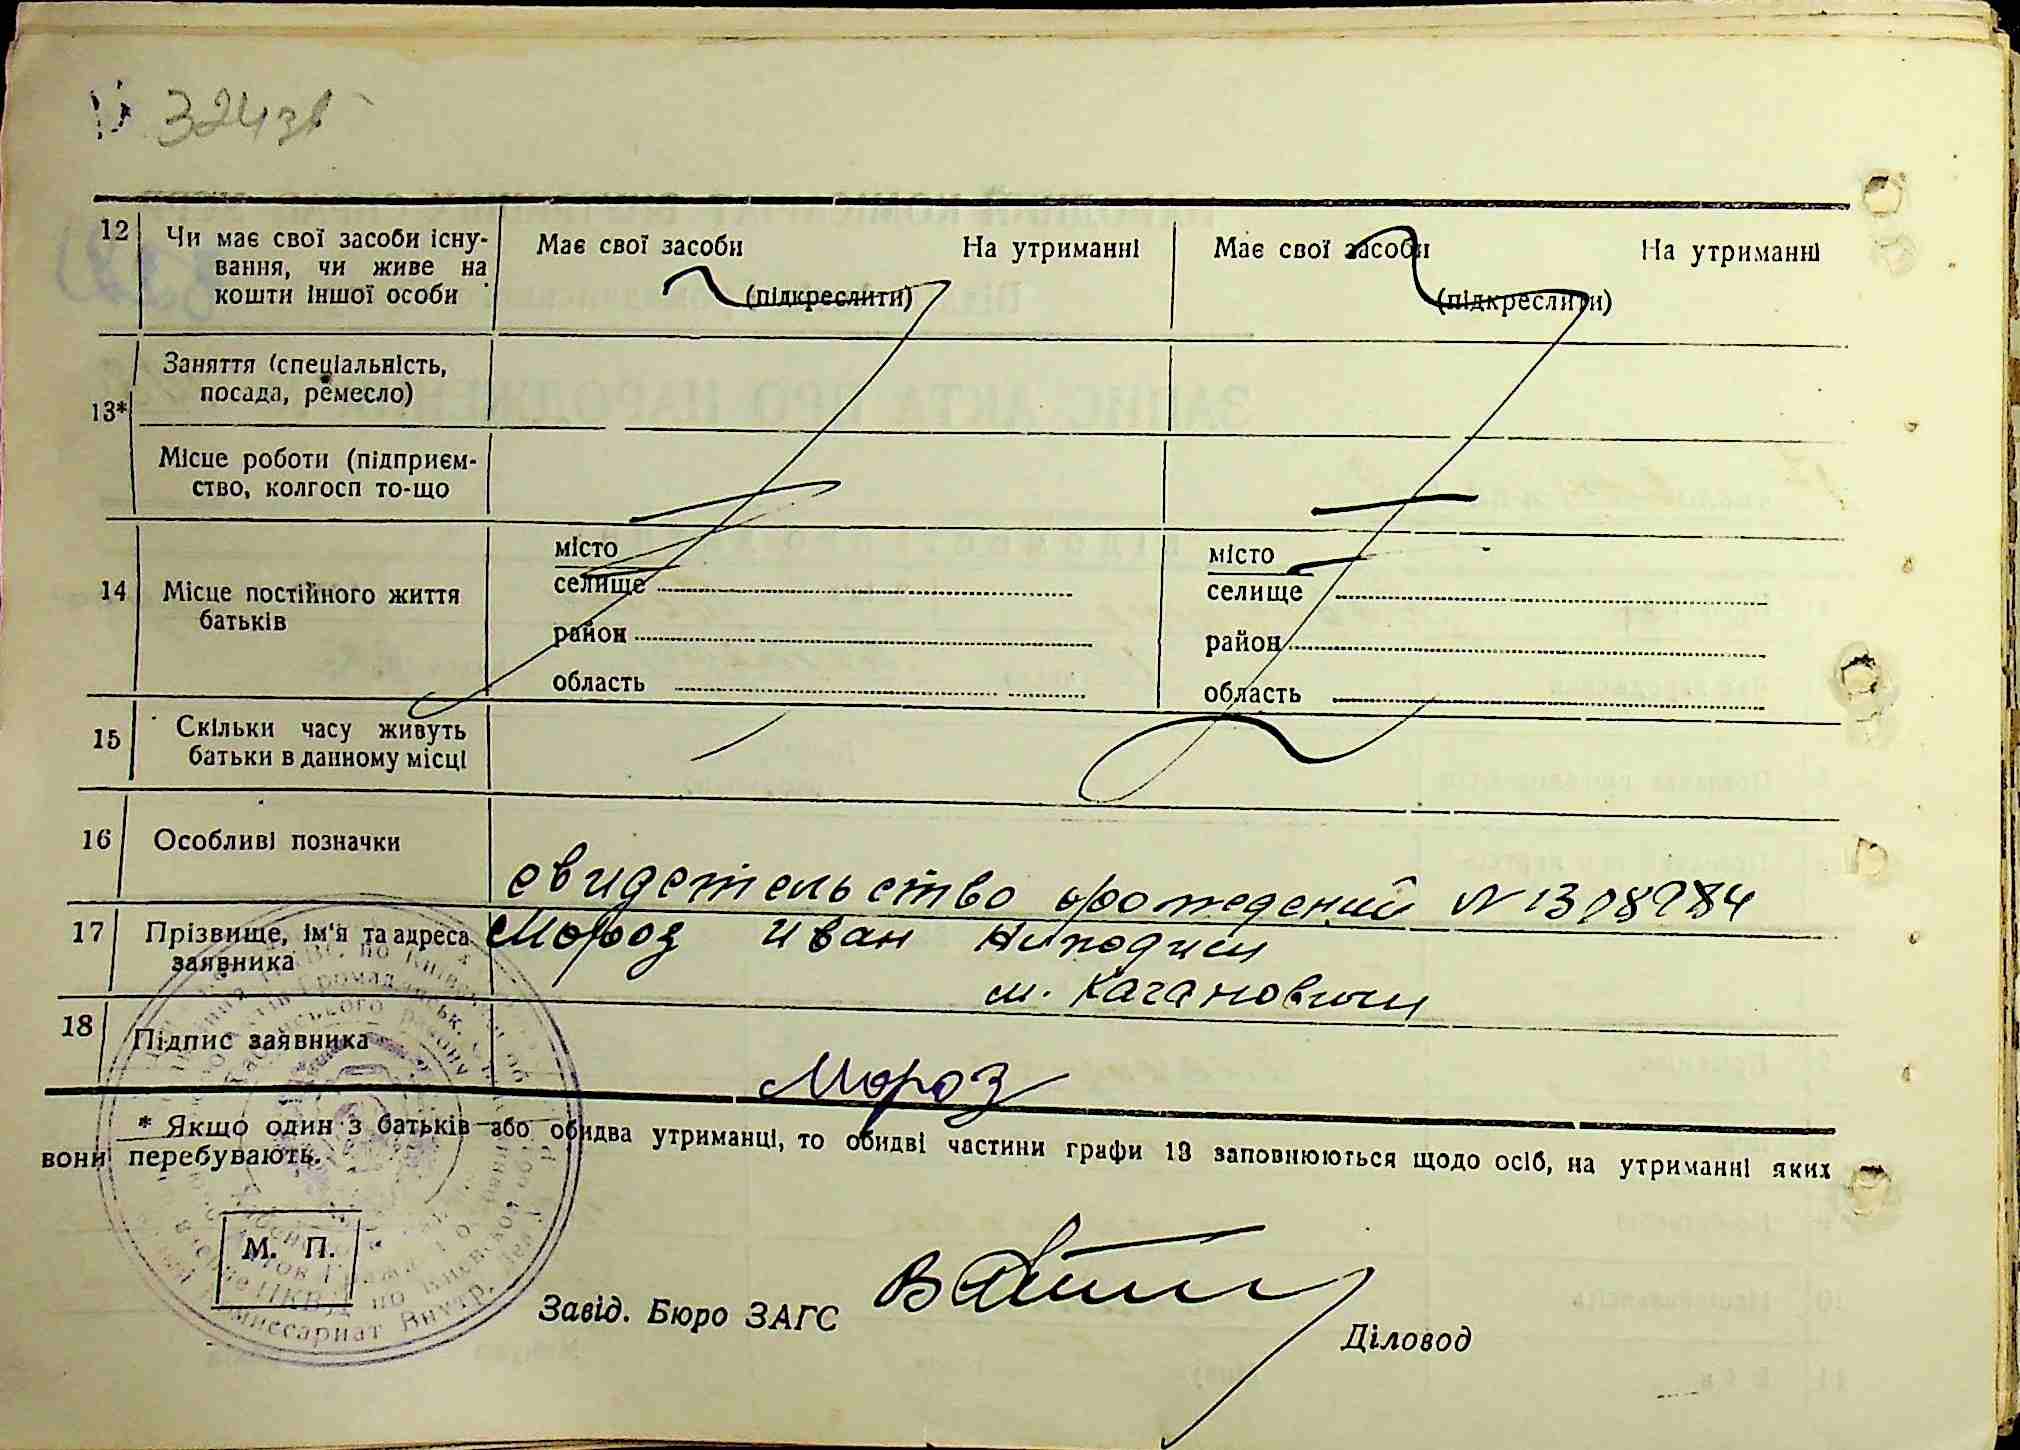 324зв
12 Чи має свої засоби існу-
вання, чи живе на
кошти іншої особи
Має свої засоби На утриманні
(підкреслити)
Має свої засоби На утриманні
(підкреслити)
13*
Заняття (спеціальність,
посада, ремесло)
Місце роботи (підприєм-
ство, колгосп то-що
14 Місце постійного життя
батьків
місто
селище
район
область
місто
селище
район
область
15 Скільки часу живуть
батьки в данному місці
16 Особливі позначки
свидетельство рождений N
17 Прізвище, ім'я та адреса
заявника
Мороз Иван
м. Кагановичи
18 Підпис заявника
Мороз
* Якщо один з батьків або обидва утриманці, то обидві частини графи 13 заповнюються щодо осіб, на утриманні яких
вони перебувають.
М. П.
Завід. Бюро ЗАГС
Діловод